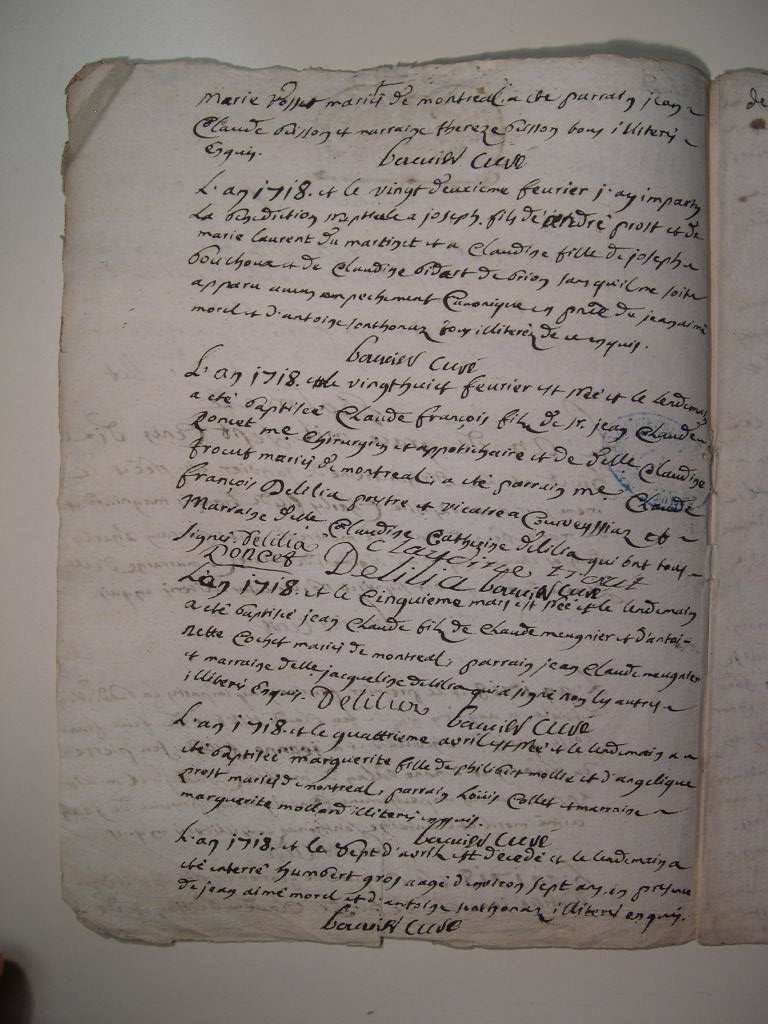 marie rosset mariés de montreal, a été parrain jean
Claude buisson et marraine thereze buisson tous illiterés
Enquis. bouvier Curé
L'an 1718. et le vingt deuxieme feurier j'ay imparty
La benediction nuptiale a joseph fils de andré prost et de
marie laurent du martinet et a Claudine fille de joseph
bouchoux et de Claudine bidart de brion sans quil ne soite
apparu aucun empechement Canonique en prñce du jean aimé
morel et d'antoine sonthonax tous illiterés de ce enquis.
bouvier Curé
L'an 1718. et le vingthuict feurier est née et le lendemain
a été baptisée Claude françois fils de sr. jean Claude
poncet me Chirurgien et appotichaire et de delle Claudine
trocut mariés de montreal, a été parrain me Claude
françois Delilia prestre et vicaire a Courveyssiaz et
Marraine delle Claudine Catherine delilia qui ont tous
signés. Delilia Claudine trocut
Poncet Delilia bouvier Curé
L'an 1718. et le Cinquieme mars est née et le lendemain
a été baptisé jean Claude fils de Claude meugnier et d'antoi-
nette Cochet mariés de montreal, parrain jean Claude meugnier
et marraine delle jacqueline delilia qui a signé non les autres
illiterés Enquis. Delilia bouvier Curé
L'an 1718. et le quattrieme avril est née et le lendemain a
été baptisée marguerite fille de philibert mollie et d'angelique
prost mariés de montreal, parrain Louis Collet et marraine
marguerite mollard illiterés enquis.
bouvier Curé
L'an 1718. et le sept d'avril est decedé et le lendemain a
été enterré humbert gros aagé d'environ sept ans en presence
de jean aimé morel et d'antoine sonthonax illiterés enquis.
bouvier Curé
de